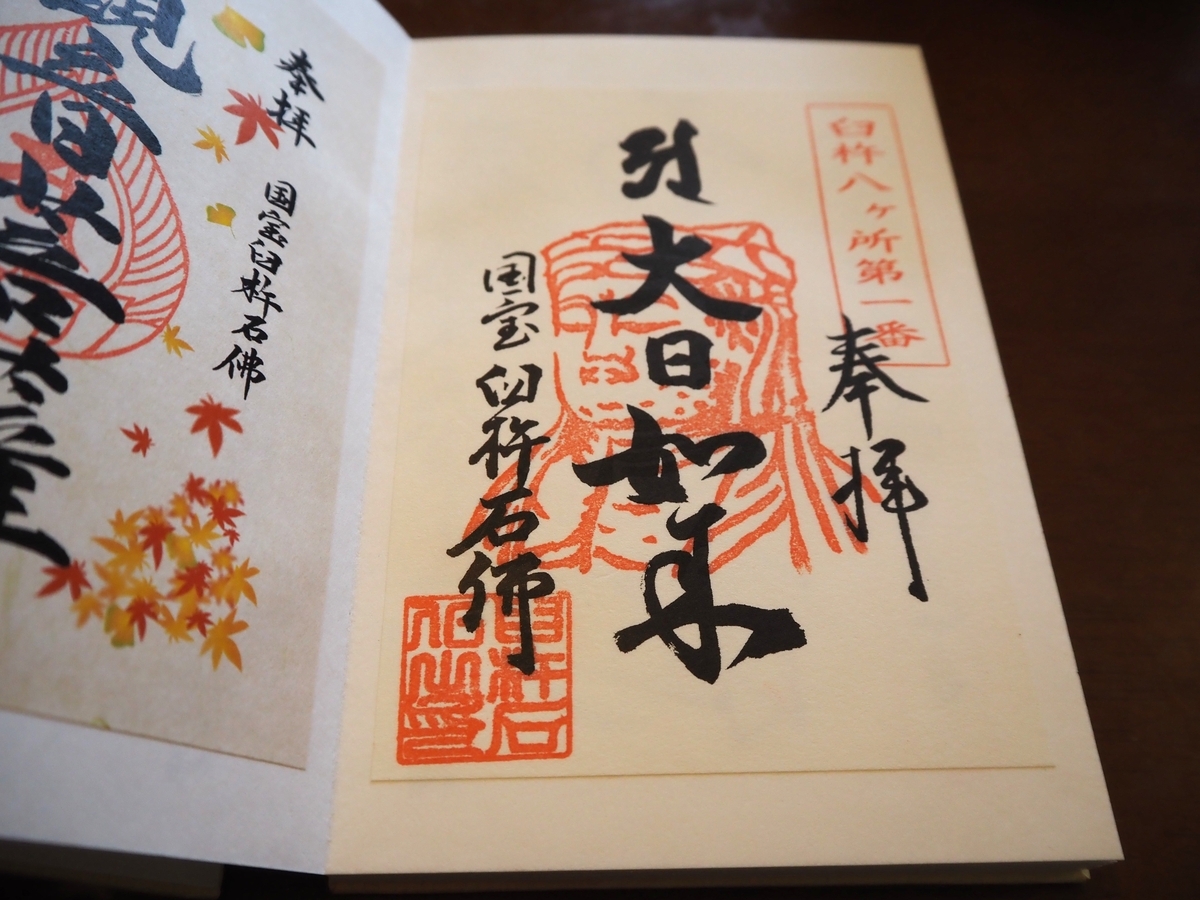 臼杵八ヶ所第一番
奉拝
大日如来
国宝臼杵石佛
臼杵石
仏之印
奉拝
国宝臼杵石佛
観音菩薩